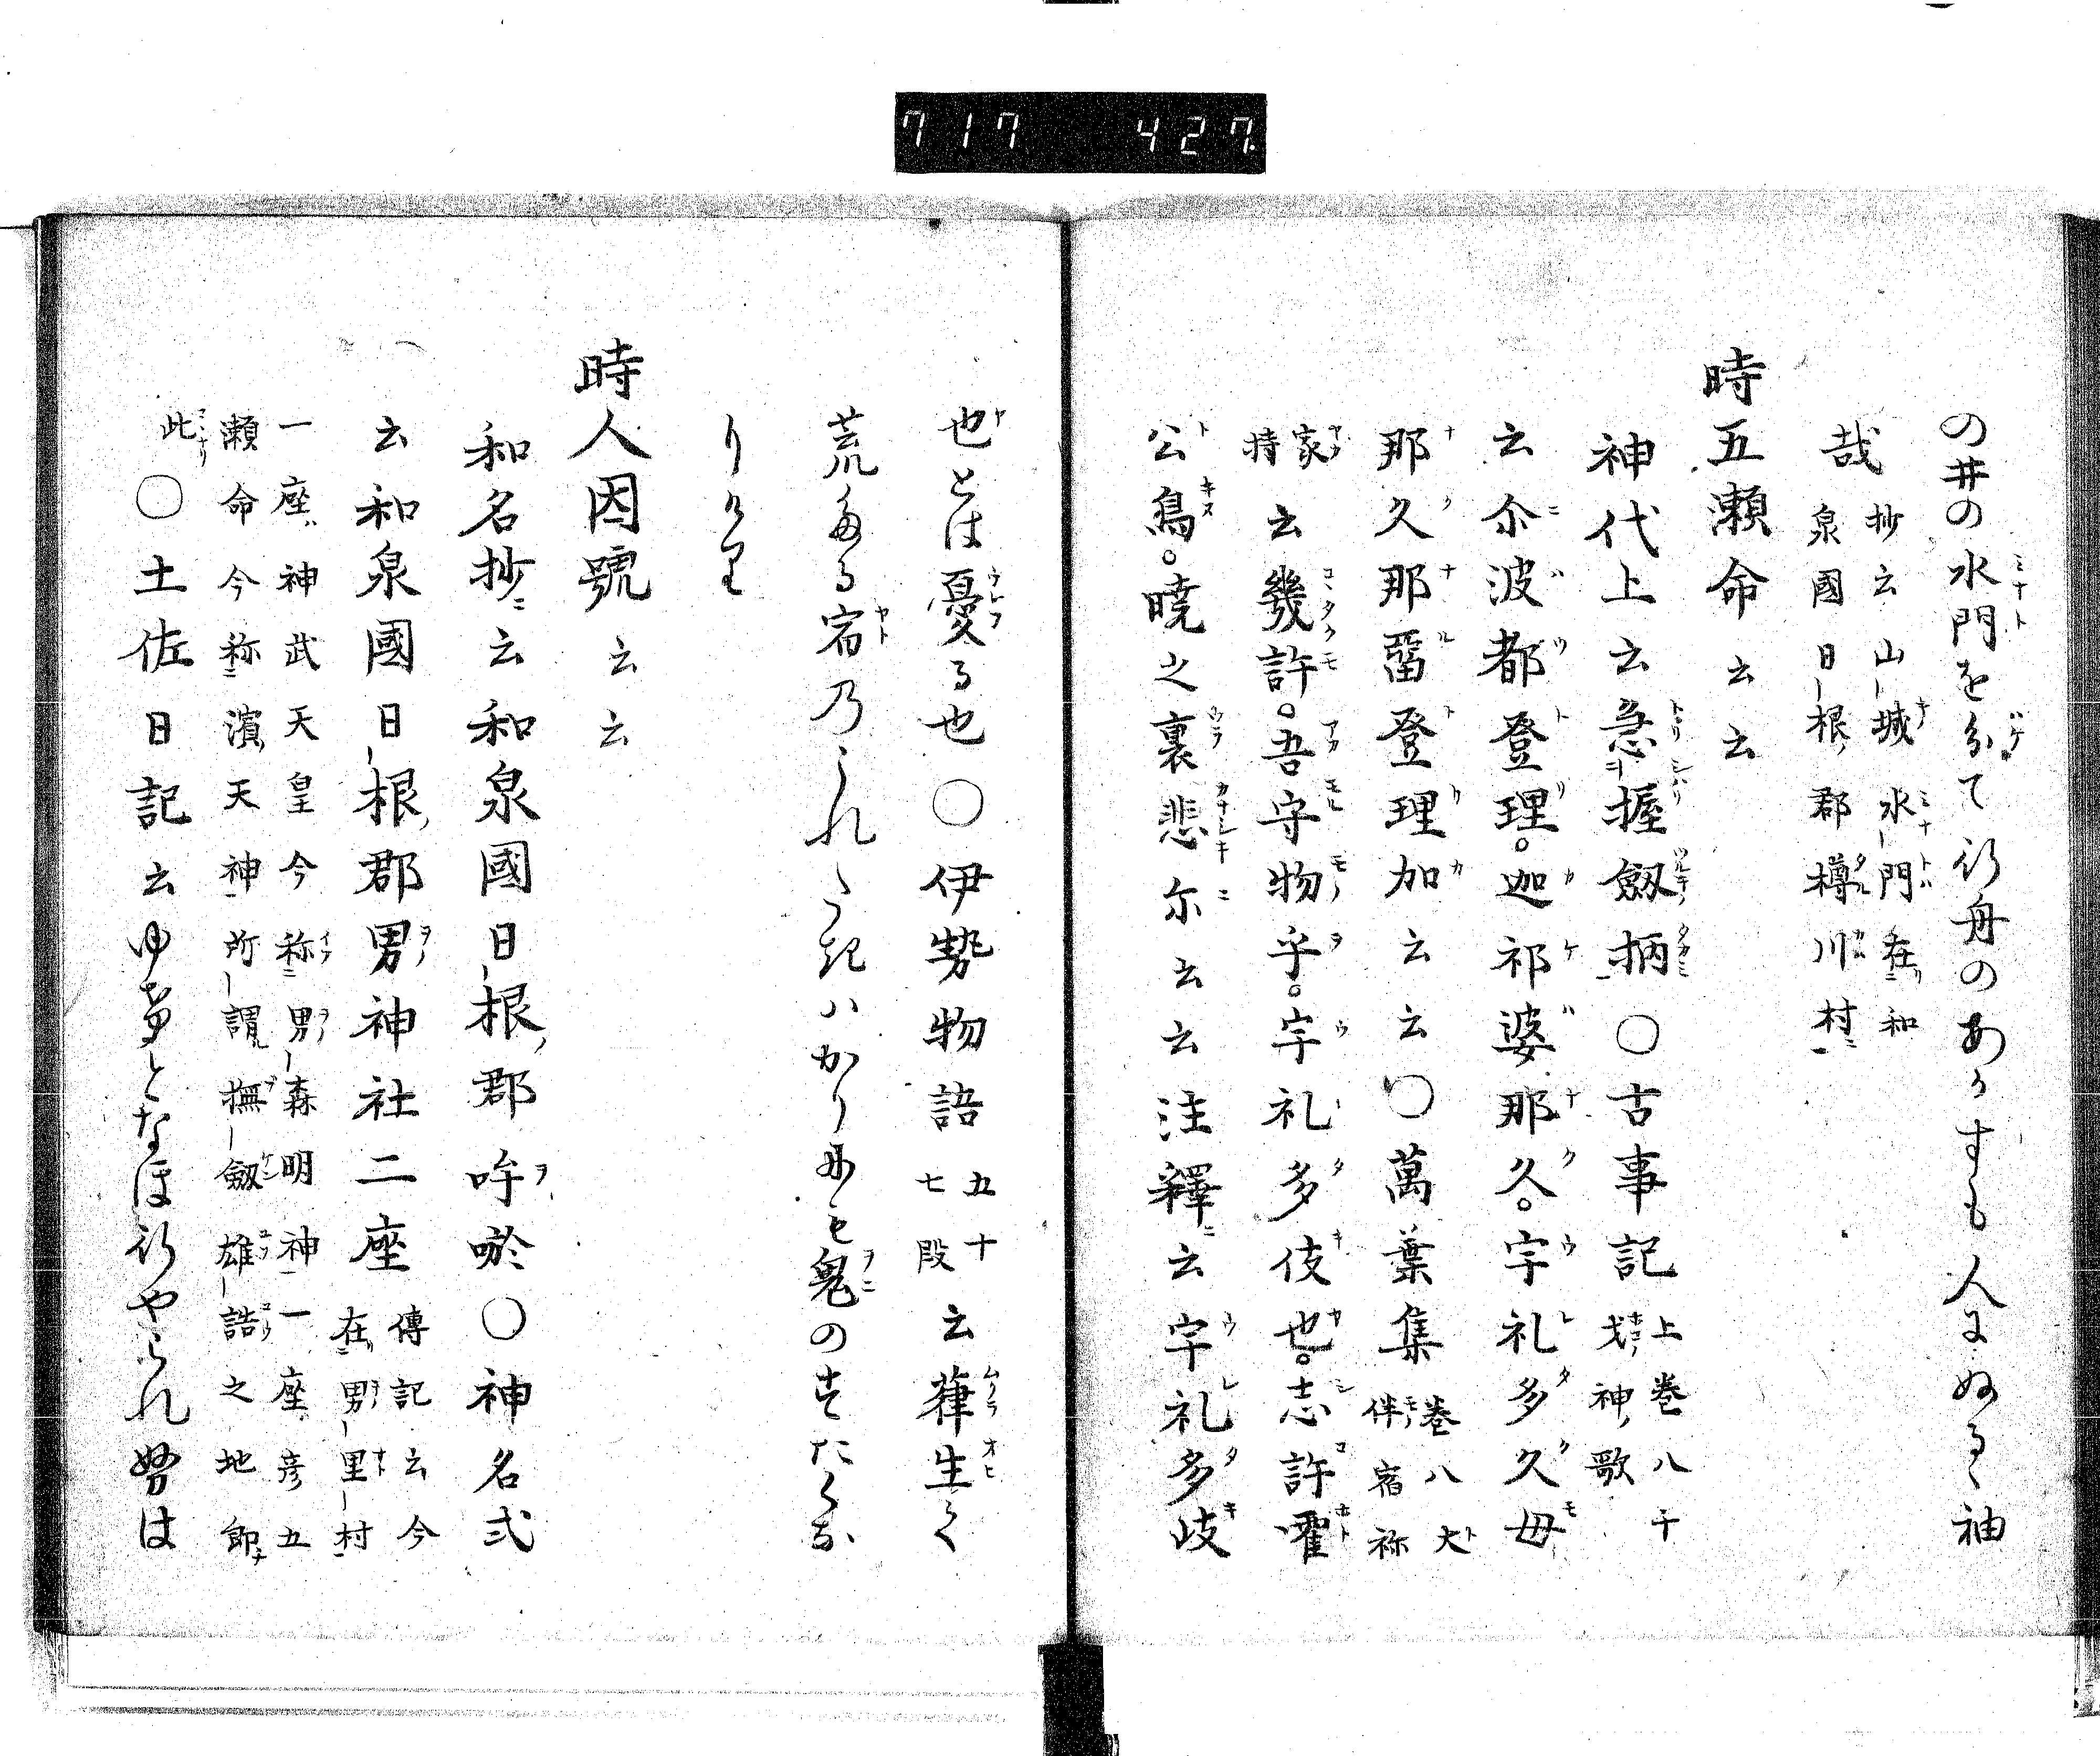 717 427
の井の水門を分て行舟のあかすも人にぬるゝ袖
哉
抄云山城水門在和
泉國日根郡樽川村
時五瀬命云云
神代上云急握劔柄〇古事記
上巻八千
戈神歌
云尒波都登理。迦祁婆那久。宇礼多久母
那久那留登理加云云〇萬葉集
巻八大
伴宿祢
家
持
云幾許。吾守物乎。宇礼多伎也。志許霍
公鳥。暁之裏悲尓云云注釋云宇礼多岐
也とは憂る也〇伊勢物語
五十
七段
云葎生て
荒たる宿乃うれたきハかりにも鬼のすたくな
りけり
時人因號云云
和名抄云和泉國日根郡呼唹〇神名式
云和泉國日根郡男神社二座
傳記云今
在男里村
一座神武天皇今称男森明神一座彦五
瀬命今称濱天神所謂撫劔雄誥之地即
此
〇土佐日記云ゆけとなほ行やられ努は